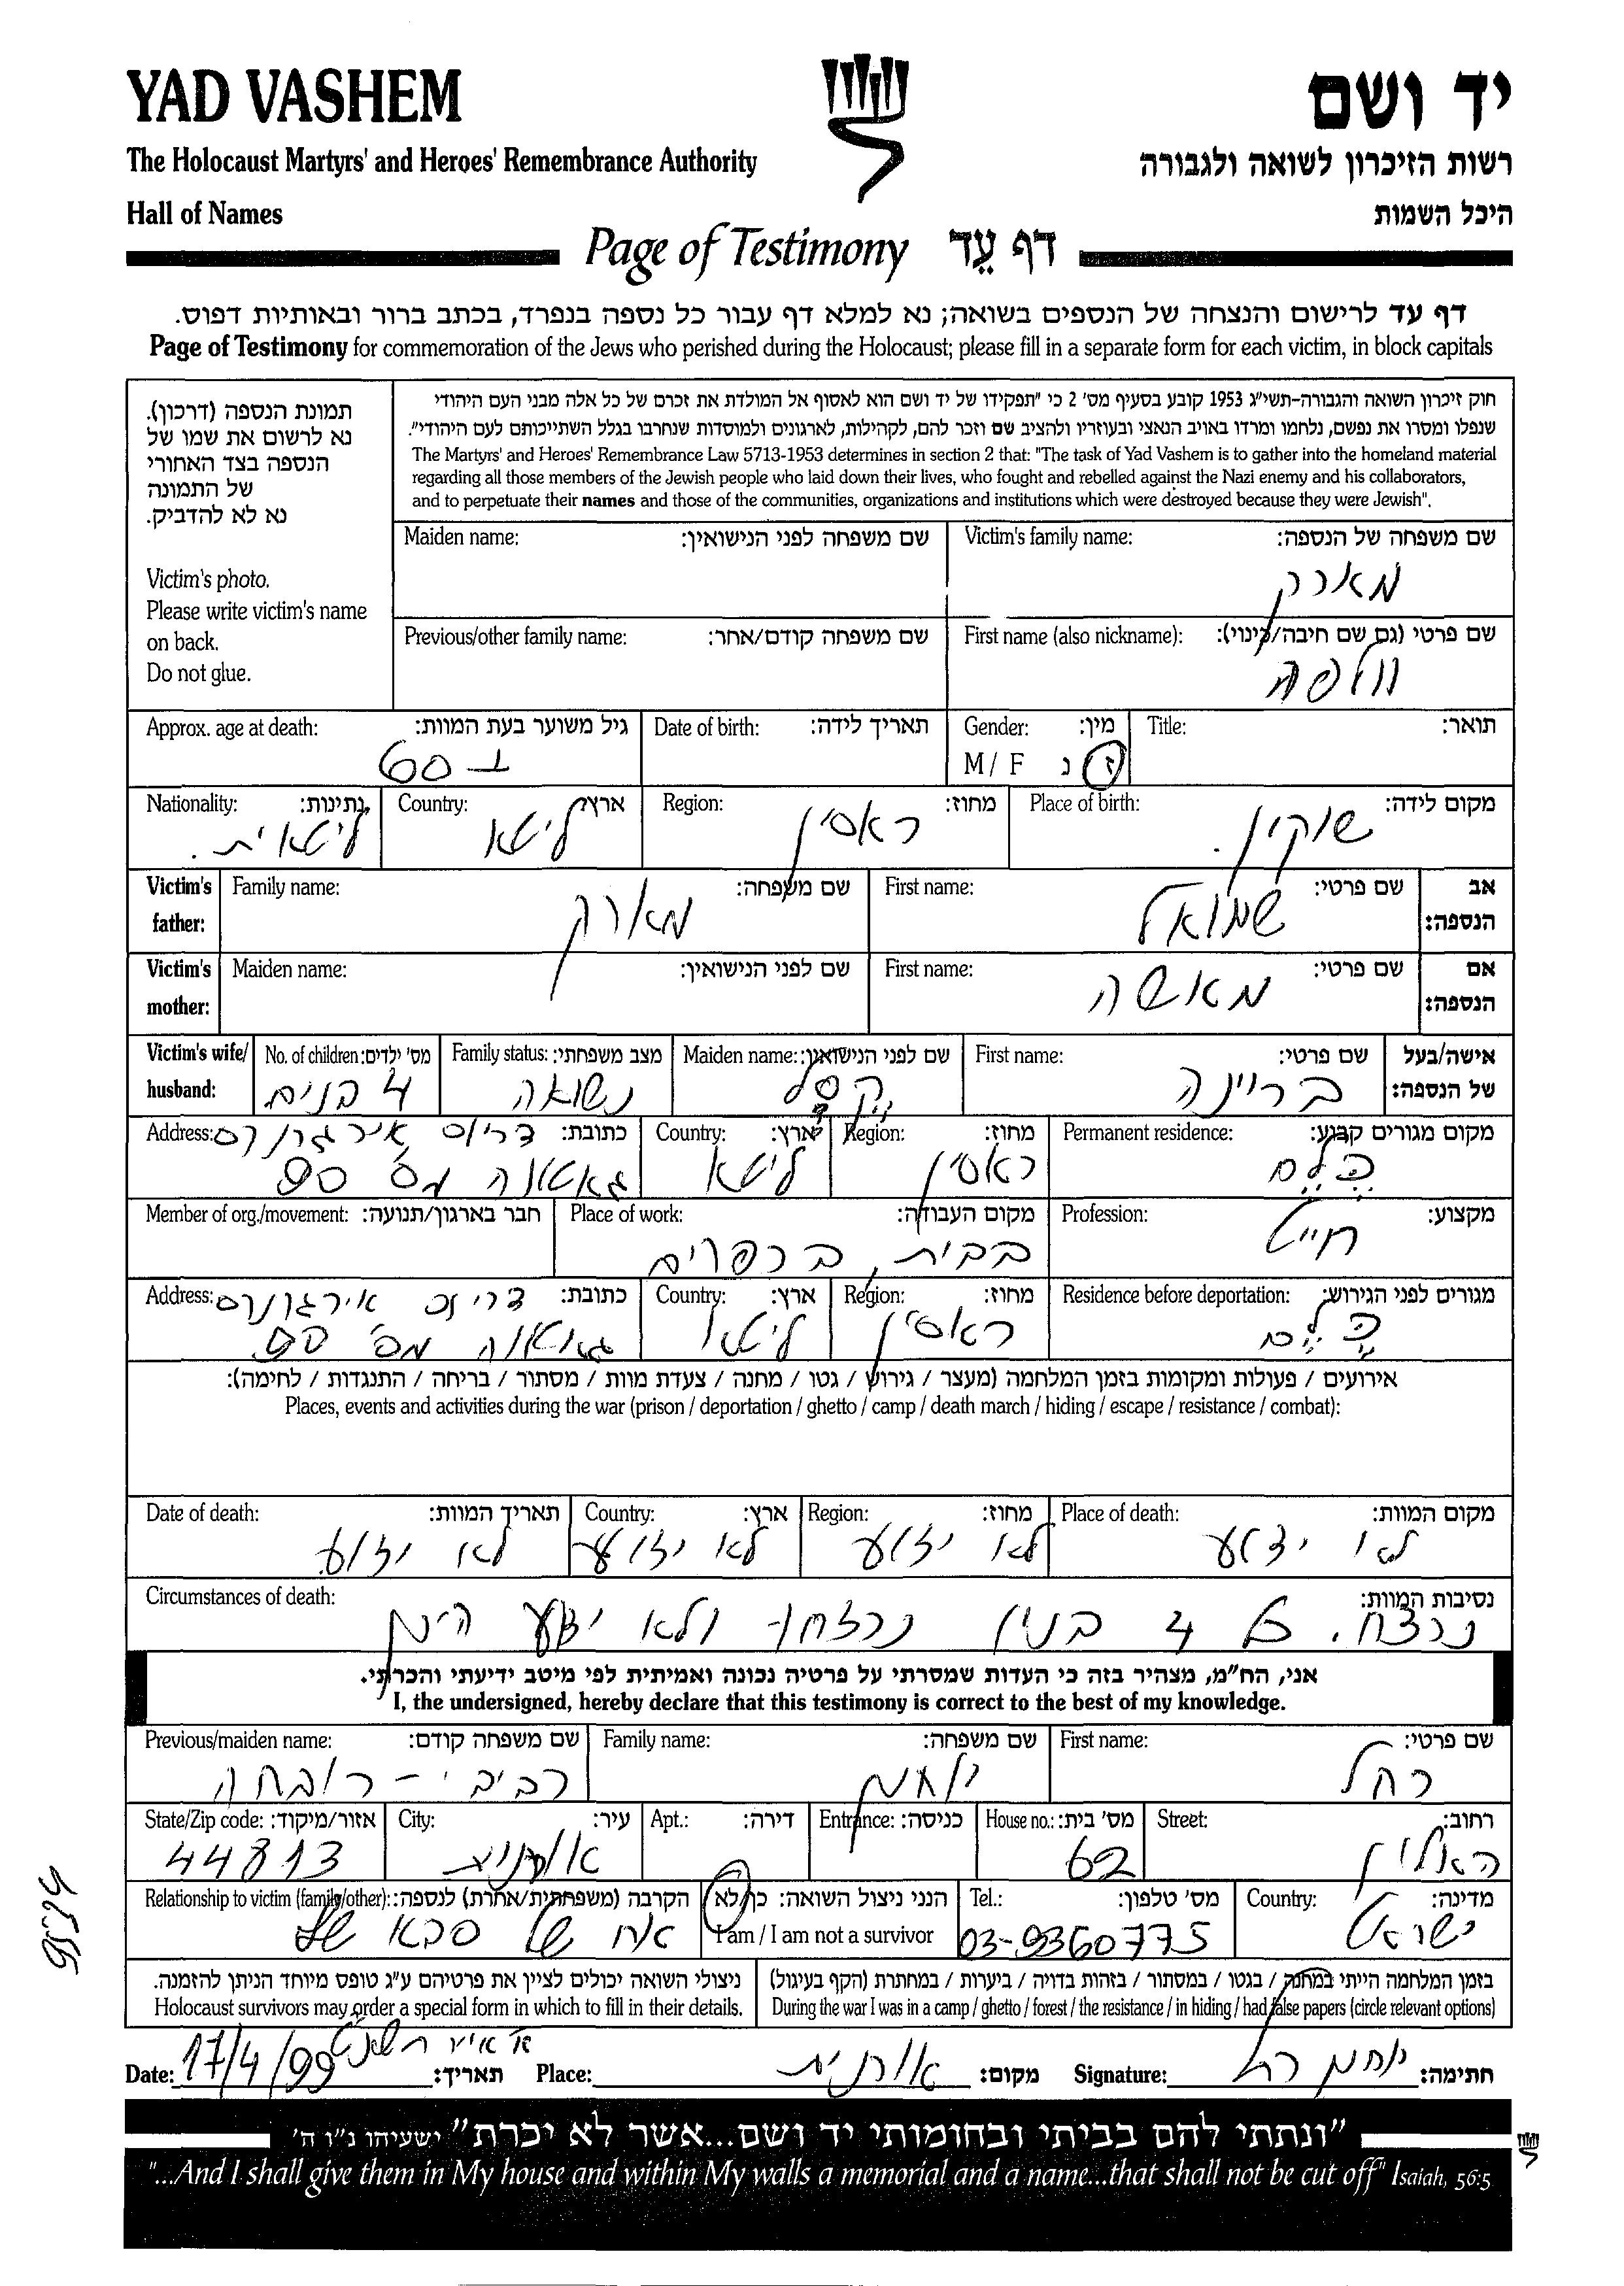 YAD VASHEM
יד ושם
The Holocaust Martyrs' and Heroes' Remembrance Authority
רשות הזיכרון לשואה ולגבורה
Hall of Names
היכל השמות
Page of Testimony דף עֵד
דף עד לרישום והנצחה של הנספים בשואה; נא למלא דף עבור כל נספה בנפרד, בכתב ברור ובאותיות דפוס.
Page of Testimony for commemoration of the Jews who perished during the Holocaust; please fill in a separate form for each victim, in block capitals
תמונת הנספה (דרכון).
נא לרשום את שמו של
הנספה בצד האחורי
של התמונה
נא לא להדביק.
Victim's photo.
Please write victim's name
on back.
Do not glue.
חוק זיכרון השואה והגבורה-תשי"ג 1953 קובע בסעיף מס' 2 כי "תפקידו של יד ושם הוא לאסוף אל המולדת את זכרם של כל אלה מבני העם היהודי
שנפלו ומסרו את נפשם, נלחמו ומרדו באויב הנאצי ובעוזריו ולהציב שם וזכר להם, לקהילות, לארגונים ולמוסדות שנחרבו בגלל השתייכותם לעם היהודי".
The Martyrs' and Heroes' Remembrance Law 5713-1953 determines in section 2 that: "The task of Yad Vashem is to gather into the homeland material
regarding all those members of the Jewish people who laid down their lives, who fought and rebelled against the Nazi enemy and his collaborators,
and to perpetuate their names and those of the communities, organizations and institutions which were destroyed because they were Jewish".
Victim's family name: שם משפחה של הנספה:
מארק
Maiden name: שם משפחה לפני הנישואין:
First name (also nickname): שם פרטי (גם שם חיבה/כינוי):
וולפה
Previous/other family name: שם משפחה קודם/אחר:
Title: תואר:
Gender: מין:
M / F ז נ
Date of birth: תאריך לידה:
Approx. age at death: גיל משוער בעת המוות:
60
Place of birth: מקום לידה:
שוקין.
Region: מחוז:
ראסין
Country: ארץ:
ליטא
Nationality: נתינות:
ליטאית.
Victim's father: אב הנספה:
First name: שם פרטי:
שמואל
Family name: שם משפחה:
מארק
Victim's mother: אם הנספה:
First name: שם פרטי:
מאשה
Maiden name: שם לפני הנישואין:
Victim's wife/ husband: אישה/בעל של הנספה:
First name: שם פרטי:
בריינה
Maiden name: שם לפני הנישואין:
Family status: מצב משפחתי:
נשואה
No. of children: מס' ילדים:
4 בנים
Permanent residence: מקום מגורים קבוע:
Region: מחוז:
ראסין
Country: ארץ:
ליטא
Address: כתובת:
מס' 90
Profession: מקצוע:
חייט
Place of work: מקום העבודה:
בבית, בכפרים
Member of org./movement: חבר בארגון/תנועה:
Residence before deportation: מגורים לפני הגירוש:
Region: מחוז:
ראסין
Country: ארץ:
ליטא
Address: כתובת:
מס' 90
אירועים / פעולות ומקומות בזמן המלחמה (מעצר / גירוש / גטו / מחנה / צעדת מוות / מסתור / בריחה / התנגדות / לחימה):
Places, events and activities during the war (prison / deportation / ghetto / camp / death march / hiding / escape / resistance / combat):
Place of death: מקום המוות:
לא ידוע
Region: מחוז:
לא ידוע
Country: ארץ:
לא ידוע
Date of death: תאריך המוות:
לא ידוע.
Circumstances of death: נסיבות המוות:
נרצח. כל 4 בניו נרצחו ולא ידוע היכן
אני, הח"מ, מצהיר בזה כי העדות שמסרתי על פרטיה נכונה ואמיתית לפי מיטב ידיעתי והכרתי.
I, the undersigned, hereby declare that this testimony is correct to the best of my knowledge.
First name: שם פרטי:
רחל
Family name: שם משפחה:
יוחמן
Previous/maiden name: שם משפחה קודם:
רביבי -
Street: רחוב:
האלון
House no.: מס' בית:
62
Entrance: כניסה:
Apt.: דירה:
City: עיר:
אורנית
State/Zip code: אזור/מיקוד:
44813
Country: מדינה:
ישראל
Tel.: מס' טלפון:
03-9360775
הנני ניצול השואה: כן/לא
I am / I am not a survivor
Relationship to victim (family/other): הקרבה (משפחתית/אחרת) לנספה:
אח של סבא שלי
בזמן המלחמה הייתי במחנה / בגטו / במסתור / בזהות בדויה / ביערות / במחתרת (הקף בעיגול)
During the war I was in a camp / ghetto / forest / the resistance / in hiding / had false papers (circle relevant options)
ניצולי השואה יכולים לציין את פרטיהם ע"ג טופס מיוחד הניתן להזמנה.
Holocaust survivors may order a special form in which to fill in their details.
א' אייר תשנ"ט
Date: 17/4/99 תאריך:
Place: אורנית מקום:
Signature: יוחמן רחל חתימה:
"ונתתי להם בביתי ובחומותי יד ושם...אשר לא יכרת" ישעיהו נ"ו ה'
"...And I shall give them in My house and within My walls a memorial and a name...that shall not be cut off" Isaiah, 56:5